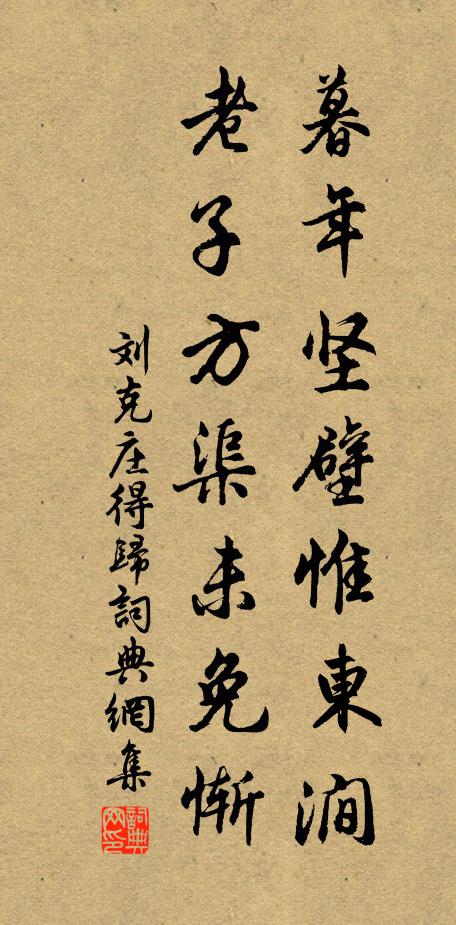 暮年坚壁惟東澗
老子方渠未免慚
刘克庄得歸詞典網集
詞典網印